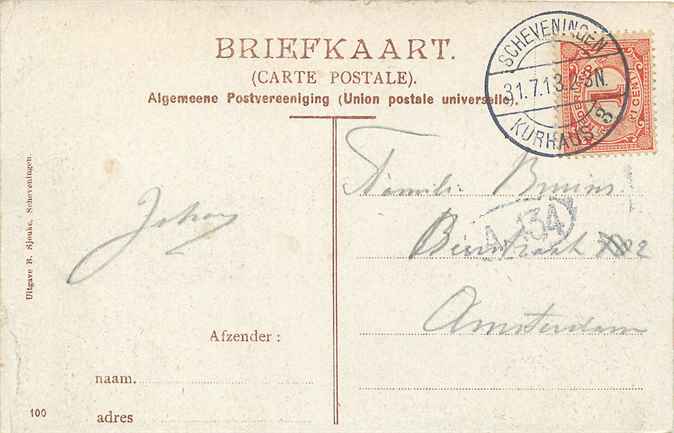 BRIEFKAART.
(CARTE POSTALE).
Algemeene Postvereeniging (Union postale universelle).
SCHEVENINGEN
31.7.13. 2-3N.
KURHAUS
1
1 CENT
Familie Bruins
A 134
2
Amsterdam
Johan
Afzender :
naam.
adres
100
Uitgave R. Sjouke, Scheveningen.